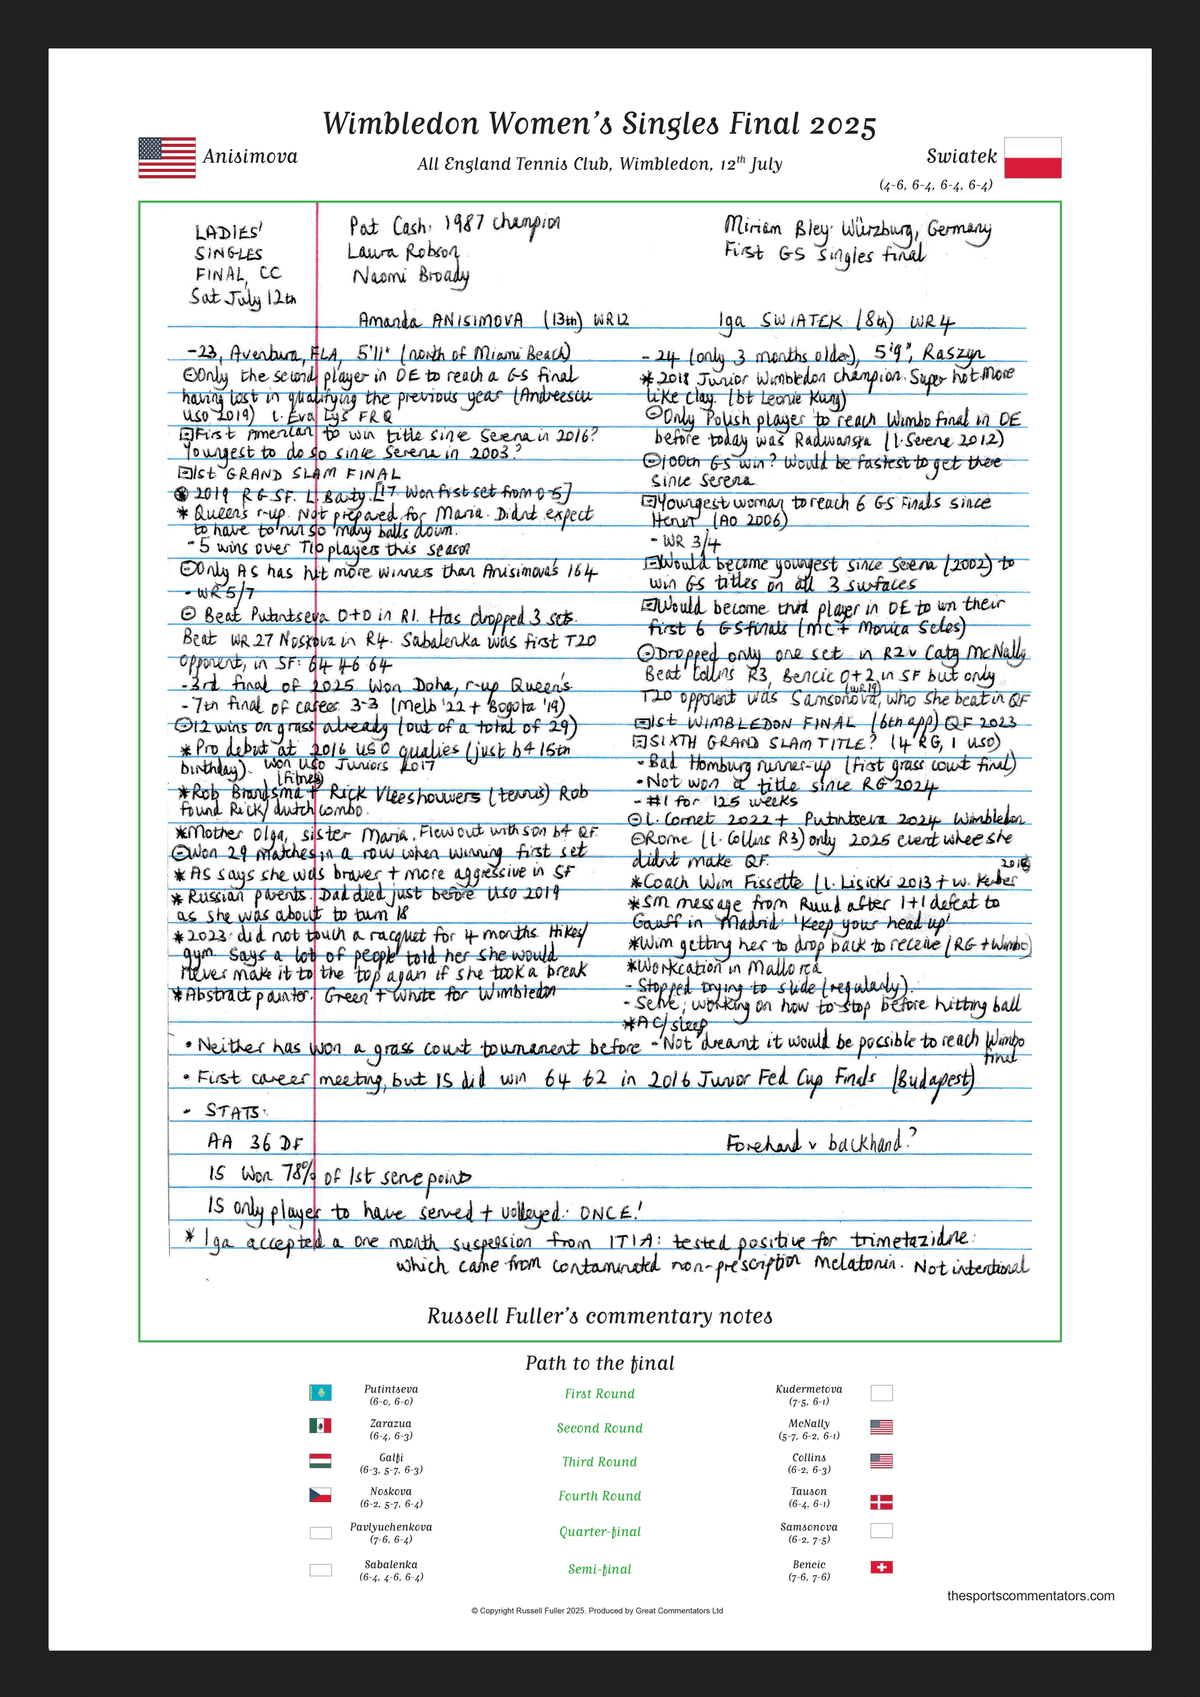 Wimbledon Women's Singles Final 2025
Anisimova
All England Tennis Club, Wimbledon, 12th July
Swiatek
(4-6, 6-4, 6-4, 6-4)
LADIES'
SINGLES
FINAL, CC
Sat July 12th
Pat Cash: 1987 champion
Laura Robson
Naomi Broady
Miriam Bley: Würzburg, Germany
First GS singles final
Amanda ANISIMOVA (13th) WR12
-23, Aventura, FLA, 5'11" (north of Miami Beach)
Only the second player in OE to reach a GS final
having lost in qualifying the previous year (Andreescu
USO 2019) l. Eva Lys FRQ
First American to win title since Serena in 2016?
Youngest to do so since Serena in 2003?
1st GRAND SLAM FINAL
* 2019 RG SF. L Barty. [17. Won first set from 0-5]
* Queen's r-up. Not prepared for Maria. Didnt expect
to have to run so many balls down.
-5 wins over T10 players this season
Only AS has hit more winners than Anisimova's 164
- WR 5/7
Beat Putintseva 0+0 in R1. Has dropped 3 sets.
Beat WR 27 Noskova in R4. Sabalenka was first T20
opponent, in SF: 64 46 64
-3rd final of 2025. Won Doha, r-up Queen's
-7th final of career. 3-3 (Melb '22 + Bogota '19)
12 wins on grass already (out of a total of 29)
* Pro debut at 2016 USO qualies (just b4 15th
birthday). Won USO Juniors 2017
(fitness)
*Rob Brandsma + Rick Vleeshouwers (tennis) Rob
found Rick/dutch combo.
*Mother Olga, sister Maria. Flew out with son b4 QF.
Won 29 matches in a row when winning first set
* AS says she was braver + more aggressive in SF
* Russian parents. Dad died just before USO 2019
as she was about to turn 18
*2023: did not touch a racquet for 4 months. Hikes/
gym. Says a lot of people told her she would
never make it to the top again if she took a break
*Abstract painter. Green + white for Wimbledon
Iga SWIATEK (8th) WR4
- 24 (only 3 months older), 5'9", Raszyn
* 2018 Junior Wimbledon champion. Super hot. More
like clay. (bt Leonie Kung)
Only Polish player to reach Wimbo final in OE
before today was Radwanska (l. Serena 2012)
100th GS win? Would be fastest to get there
since Serena
Youngest woman to reach 6 GS finals since
Henin (AO 2006)
- WR 3/4
Would become youngest since Serena (2002) to
win GS titles on all 3 surfaces
Would become third player in OE to win their
first 6 GS finals (MC + Monica Seles)
Dropped only one set in R2 v Caty McNally
Beat Collins R3, Bencic 0+2 in SF but only
T20 opponent was Samsonova, (WR19) who she beat in QF
1st WIMBLEDON FINAL (6th app) QF 2023
SIXTH GRAND SLAM TITLE? (4 RG, 1 USO)
- Bad Homburg runner-up (first grass court final)
- Not won a title since RG 2024
- #1 for 125 weeks
l. Cornet 2022 + Putintseva 2024 Wimbledon
Rome (l. Collins R3) only 2025 event where she
didnt make QF.
2018
*Coach Wim Fissette (l. Lisicki 2013 + w. Kerber
*SM message from Ruud after 1+1 defeat to
Gauff in Madrid: 'Keep your head up'
*Wim getting her to drop back to receive (RG + Wimbo)
*Workcation in Mallorca
- Stopped trying to slide (regularly).
- Serve; working on how to stop before hitting ball
*AC/sleep
-'Not dreamt it would be possible to reach Wimbo
final
• Neither has won a grass court tournament before
• First career meeting, but IS did win 64 62 in 2016 Junior Fed Cup Finals (Budapest)
- STATS:
AA 36 DF
Forehand v backhand?
IS Won 78% of 1st serve points
IS only player to have served + volleyed: ONCE!
* Iga accepted a one month suspension from ITIA: tested positive for trimetazidine:
which came from contaminated non-prescription melatonin. Not intentional
Russell Fuller's commentary notes
Path to the final
Putintseva
(6-0, 6-0)
First Round
Kudermetova
(7-5, 6-1)
Zarazua
(6-4, 6-3)
Second Round
McNally
(5-7, 6-2, 6-1)
Galfi
(6-3, 5-7, 6-3)
Third Round
Collins
(6-2, 6-3)
Noskova
(6-2, 5-7, 6-4)
Fourth Round
Tauson
(6-4, 6-1)
Pavlyuchenkova
(7-6, 6-4)
Quarter-final
Samsonova
(6-2, 7-5)
Sabalenka
(6-4, 4-6, 6-4)
Semi-final
Bencic
(7-6, 7-6)
thesportscommentators.com
© Copyright Russell Fuller 2025. Produced by Great Commentators Ltd